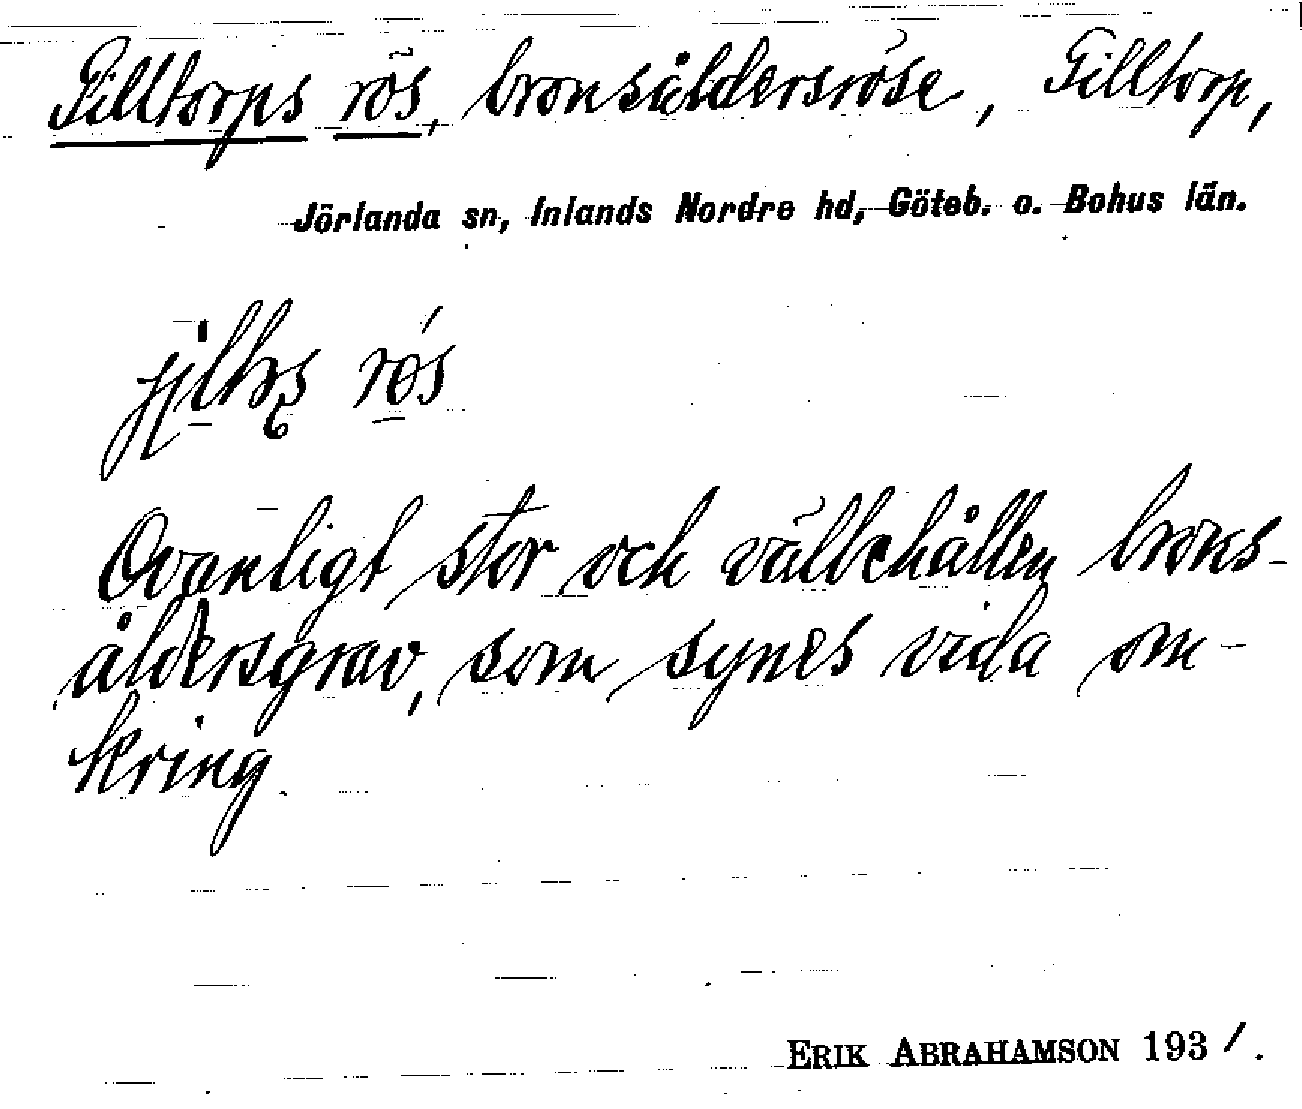 Gilltorps rös, bronsåldersröse, Gilltorp,
Jörlanda sn, Inlands Nordre hd, Göteb. o. Bohus län.
rös
Ovanligt stor och välbehållen brons-
åldersgrav, som synes vida om-
kring.
ERIK ABRAHAMSON 1931.